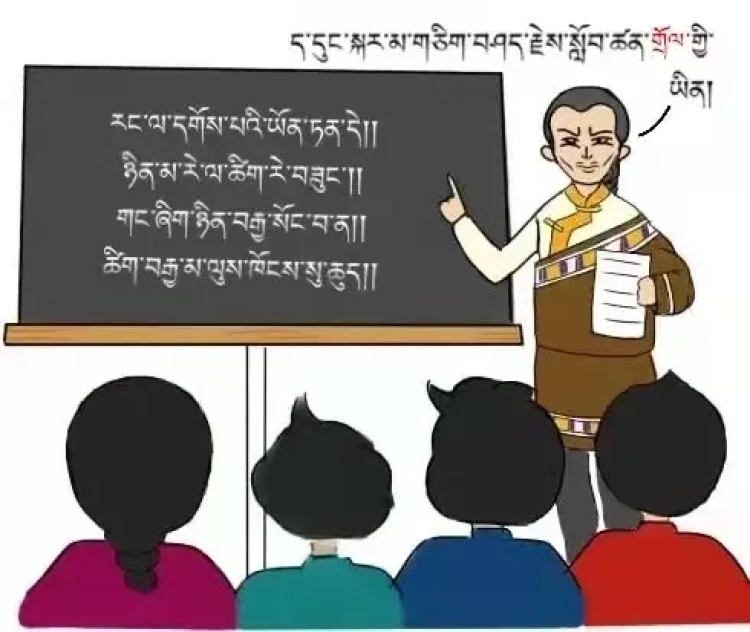 ད་དུང་སྐར་མ་གཅིག་བཤད་རྗེས་སློབ་ཚན་གྲོལ་གྱི་
ཡིན།
རང་ལ་དགོས་པའི་ཡོན་ཏན་དེ།།
ཉིན་མ་རེ་ལ་ཚིག་རེ་བཟུང་།།
གང་ཞིག་ཉིན་བརྒྱ་སོང་བ་ན།།
ཚིག་བརྒྱ་མ་ལུས་ཁོངས་སུ་ཆུད།།